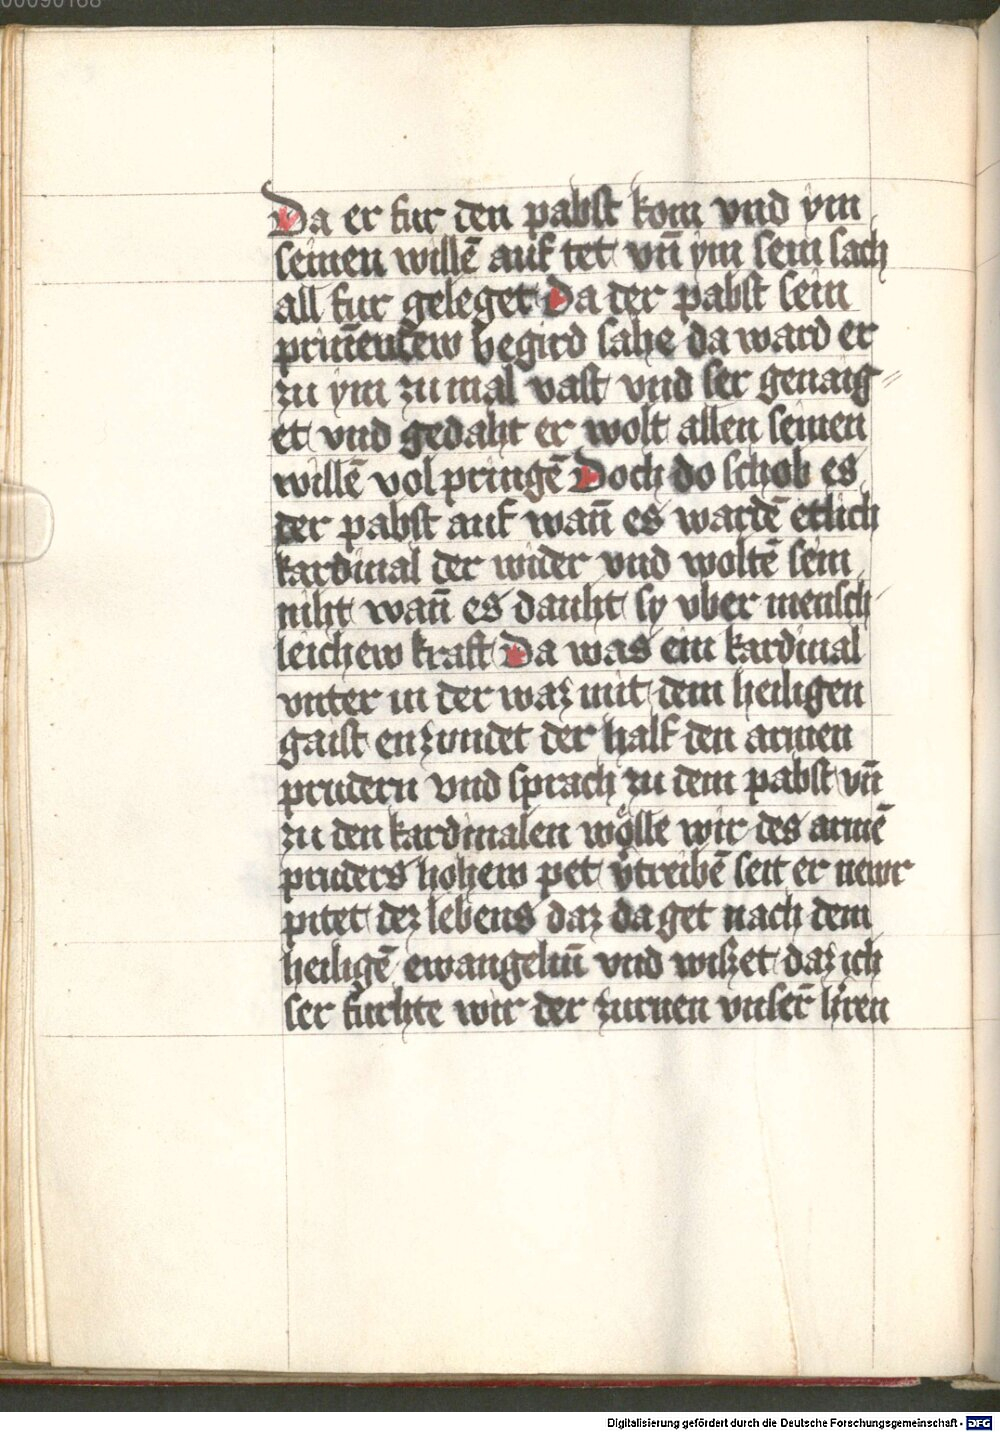 00090168
Da er fur den pabst kom vnd ym
seinen willē auf tet vn̄ ym sein sach
all fur geleget Da der pabst sein
begird sahe da ward er
zu ym zu mal vast vnd ser genaig
et vnd gedaht er wolt allen seinen
willē vol pringē Doch do schob es
der pabst auf wan̄ es wardē etlich
kardinal der wider vnd woltē sein
niht wan̄ es dauht sy vber mensch
leichew kraft Da was ein kardinal
vnter in der waz mit dem heiligen
gaist enzundet der half den armen
prudern vnd sprach zu dem pabst vn̄
zu den kardinalen wölle wir des armē
pruders hohew pet v̓treibē seit er newr
pitet dez lebens daz da get nach dem
heiligē ewangeliū vnd wiszet daz ich
ser furhte wir der zurnen vnser̄ h̓ren
Digitalisierung gefördert durch die Deutsche Forschungsgemeinschaft - DFG